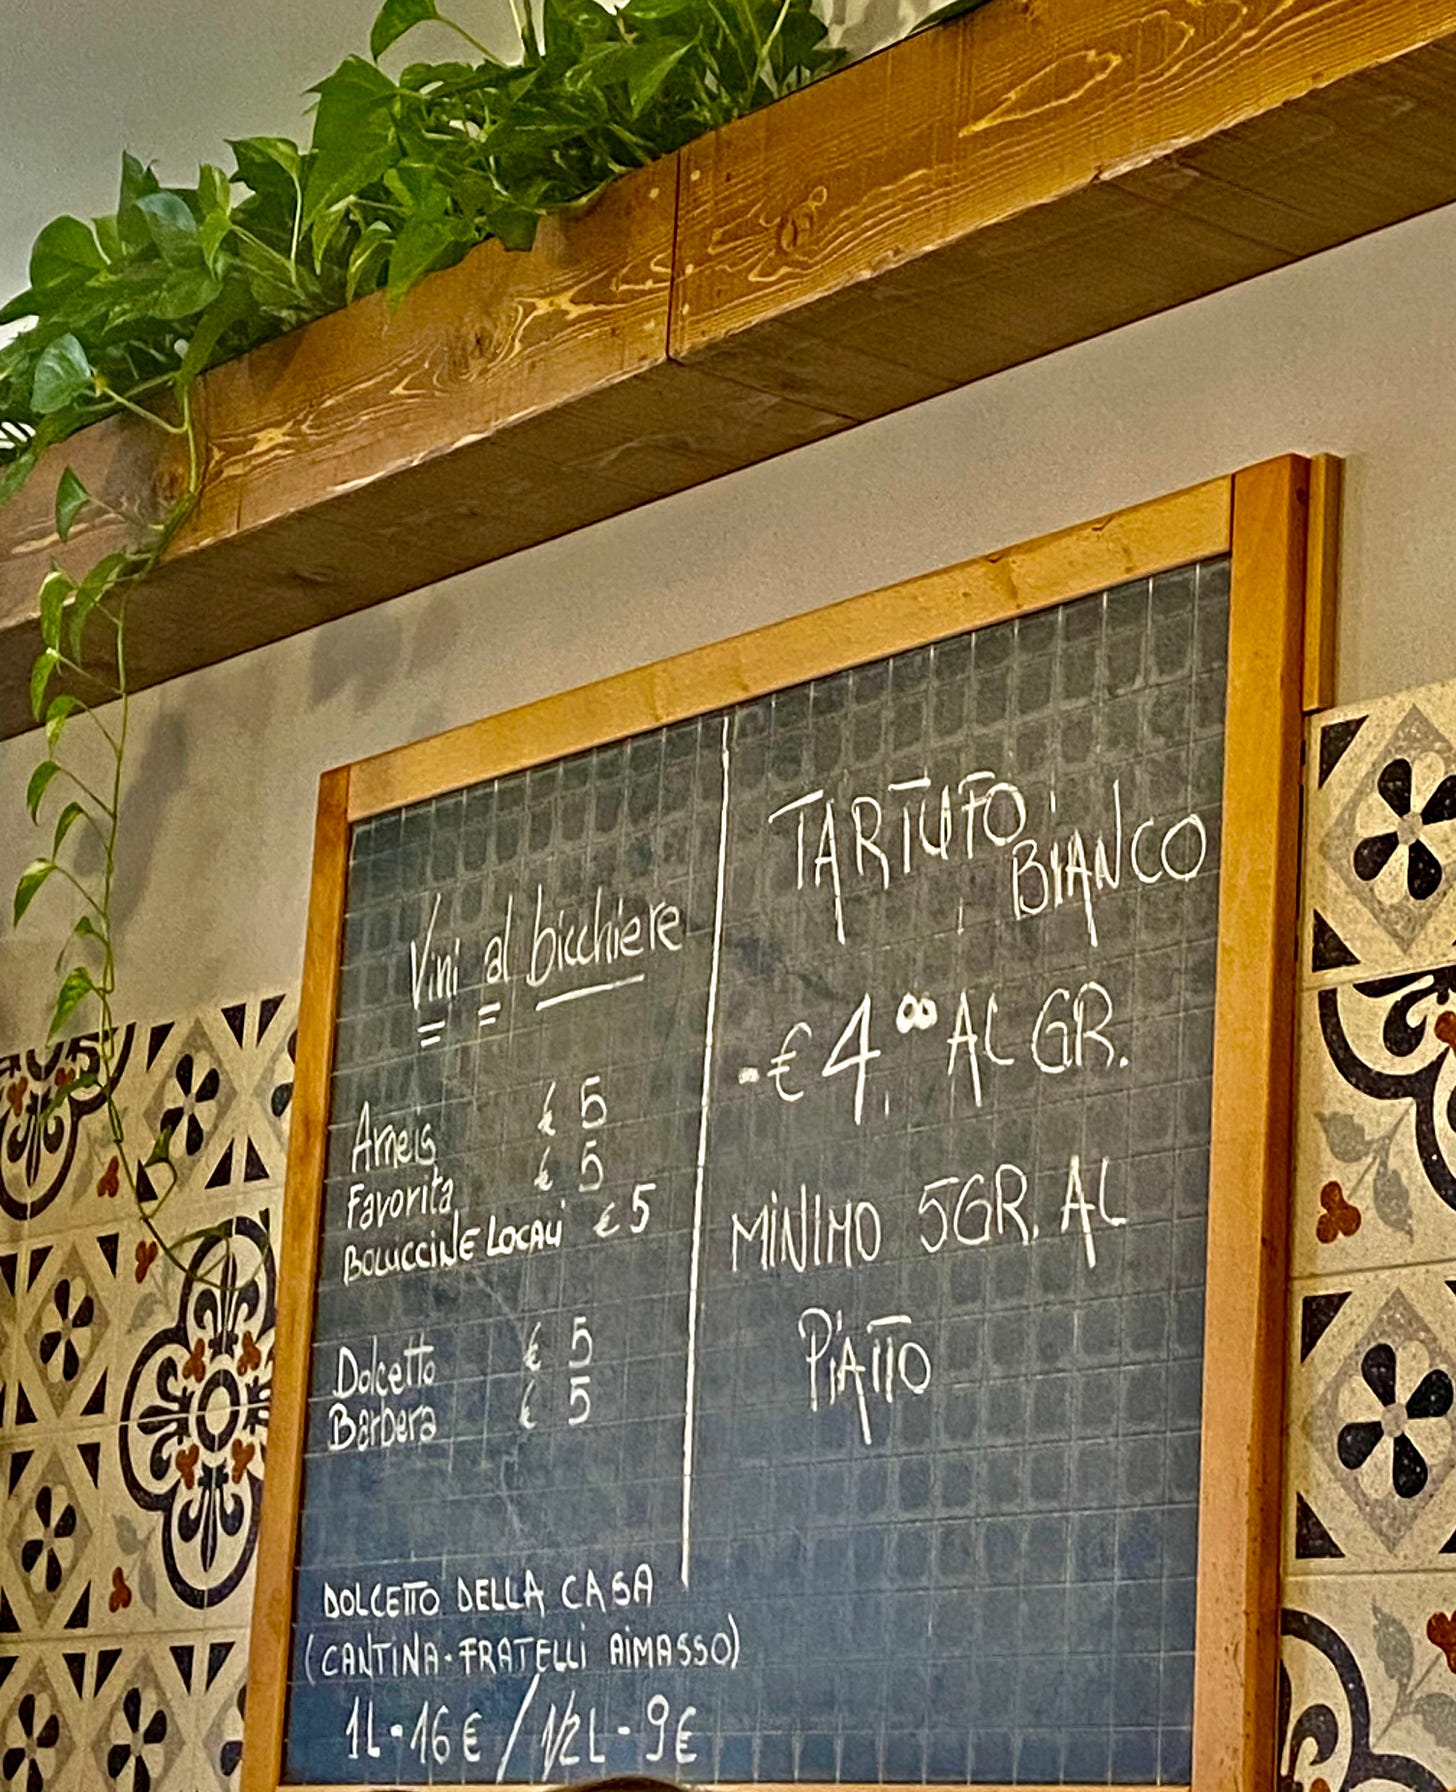 Vini al bicchiere
Arneis € 5
Favorita € 5
BOLLICCINE LOCALI € 5
Dolcetto € 5
Barbera € 5
DOLCETTO DELLA CASA
(CANTINA-FRATELLI AIMASSO)
1L-16€ / 1/2L-9€
TARTUFO
BIANCO
-€4,00 AL GR.
MINIMO 5GR. AL
PIATTO